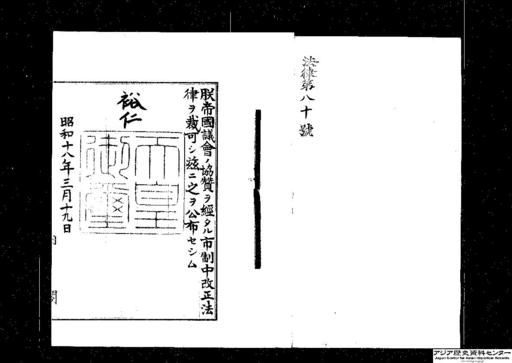 法律第八十號
朕帝國議會ノ協贊ヲ經タル市制中改正法
律ヲ裁可シ茲ニ之ヲ公布セシム
裕仁
天皇
御璽
昭和十八年三月十九日
アジア歴史資料センター
Japan Center for Asian Historical Records